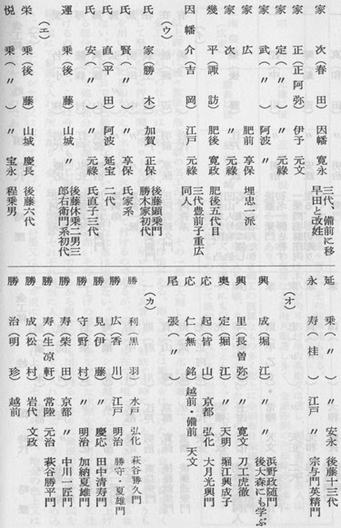 家次(春田) 因幡 寛永 三代、備前に移
早田と改姓
家正(正阿弥) 伊予 元文
家定(〃) 〃 元禄
家武(〃) 阿波 〃
家広 肥前 享保 埋忠一派
家次 〃 元禄
幾平(諏訪) 肥後 寛政 肥後五代目
因幡介(吉岡) 江戸 元禄 三代豊前子重広
同人
(ウ)
氏家(勝木) 加賀 正保 後藤顕乗門
勝木家初代
氏賢(〃) 〃 享保 氏家系
氏直(平田) 阿波 延宝 二代
氏安(〃) 〃 元禄 氏直子三代
運乗(後藤) 山城 〃 後藤休乗二男三
郎右衛門系初代
(エ)
栄乗(後藤) 山城 慶長 後藤六代
悦乗(〃) 〃 宝永 程乗男
延乗(〃) 〃 安永 後藤十三代
永寿(桂) 江戸 〃 宗与門英精門
(オ)
興成(堀江) 〃 〃 浜野政随門
後大森にも学ぶ
興里(長曽弥) 〃 寛文 刀工虎徹
奥定(堀江) 〃 天明 堀江興成子
応起(皆山) 京都 弘化 大月光興門
応仁(無銘) 越前・備前 天文
尾張(〃)
(カ)
勝利(黒羽) 水戸 弘化 萩谷勝久門
勝広(香川) 江戸 明治 勝守・夏雄門
勝見(伊藤) 〃 慶応 田中清寿門
勝守(野村) 〃 明治 加納夏雄門
勝寿(柴田) 京都 〃 中川一匠門
勝寿(生凉軒) 常陸 元治 萩谷勝平門
勝成(松村) 岩代 文政
勝治(明珍) 越前